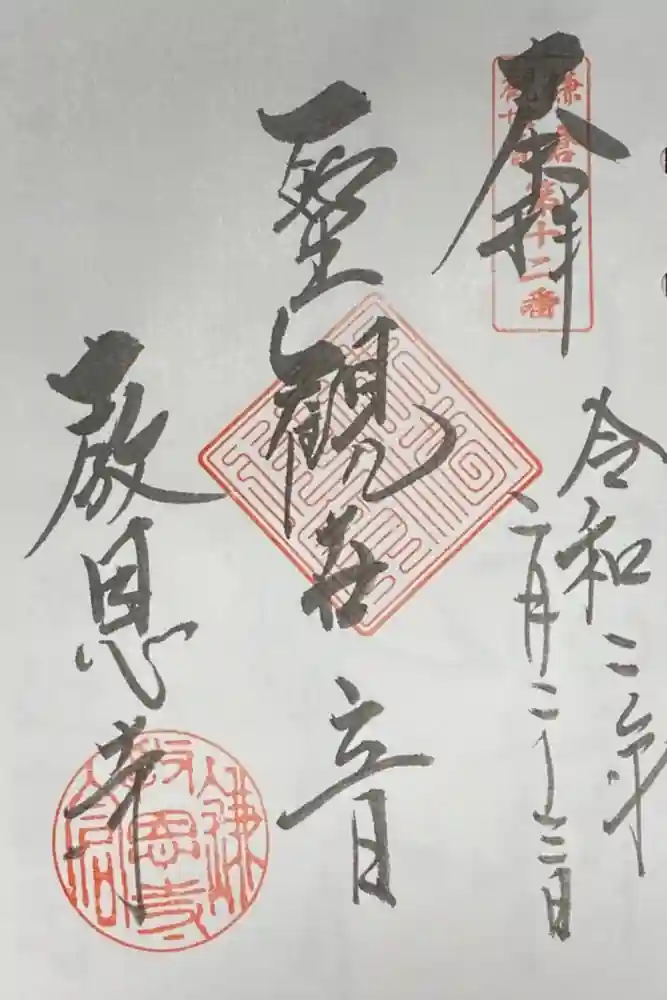 奉拝
鎌倉
観世音
第十二番
令和二年
二月二十三日
聖観世音
教恩寺
鎌倉
教恩寺